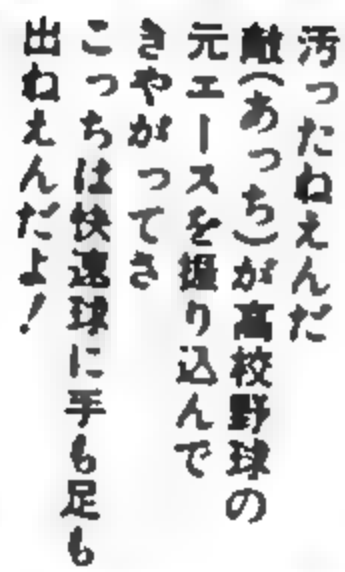 汚ったねえんだ
敵(あっち)が高校野球の
元エースを掘り込んで
きやがってさ
こっちは快速球に手も足も
出ねえんだよ!